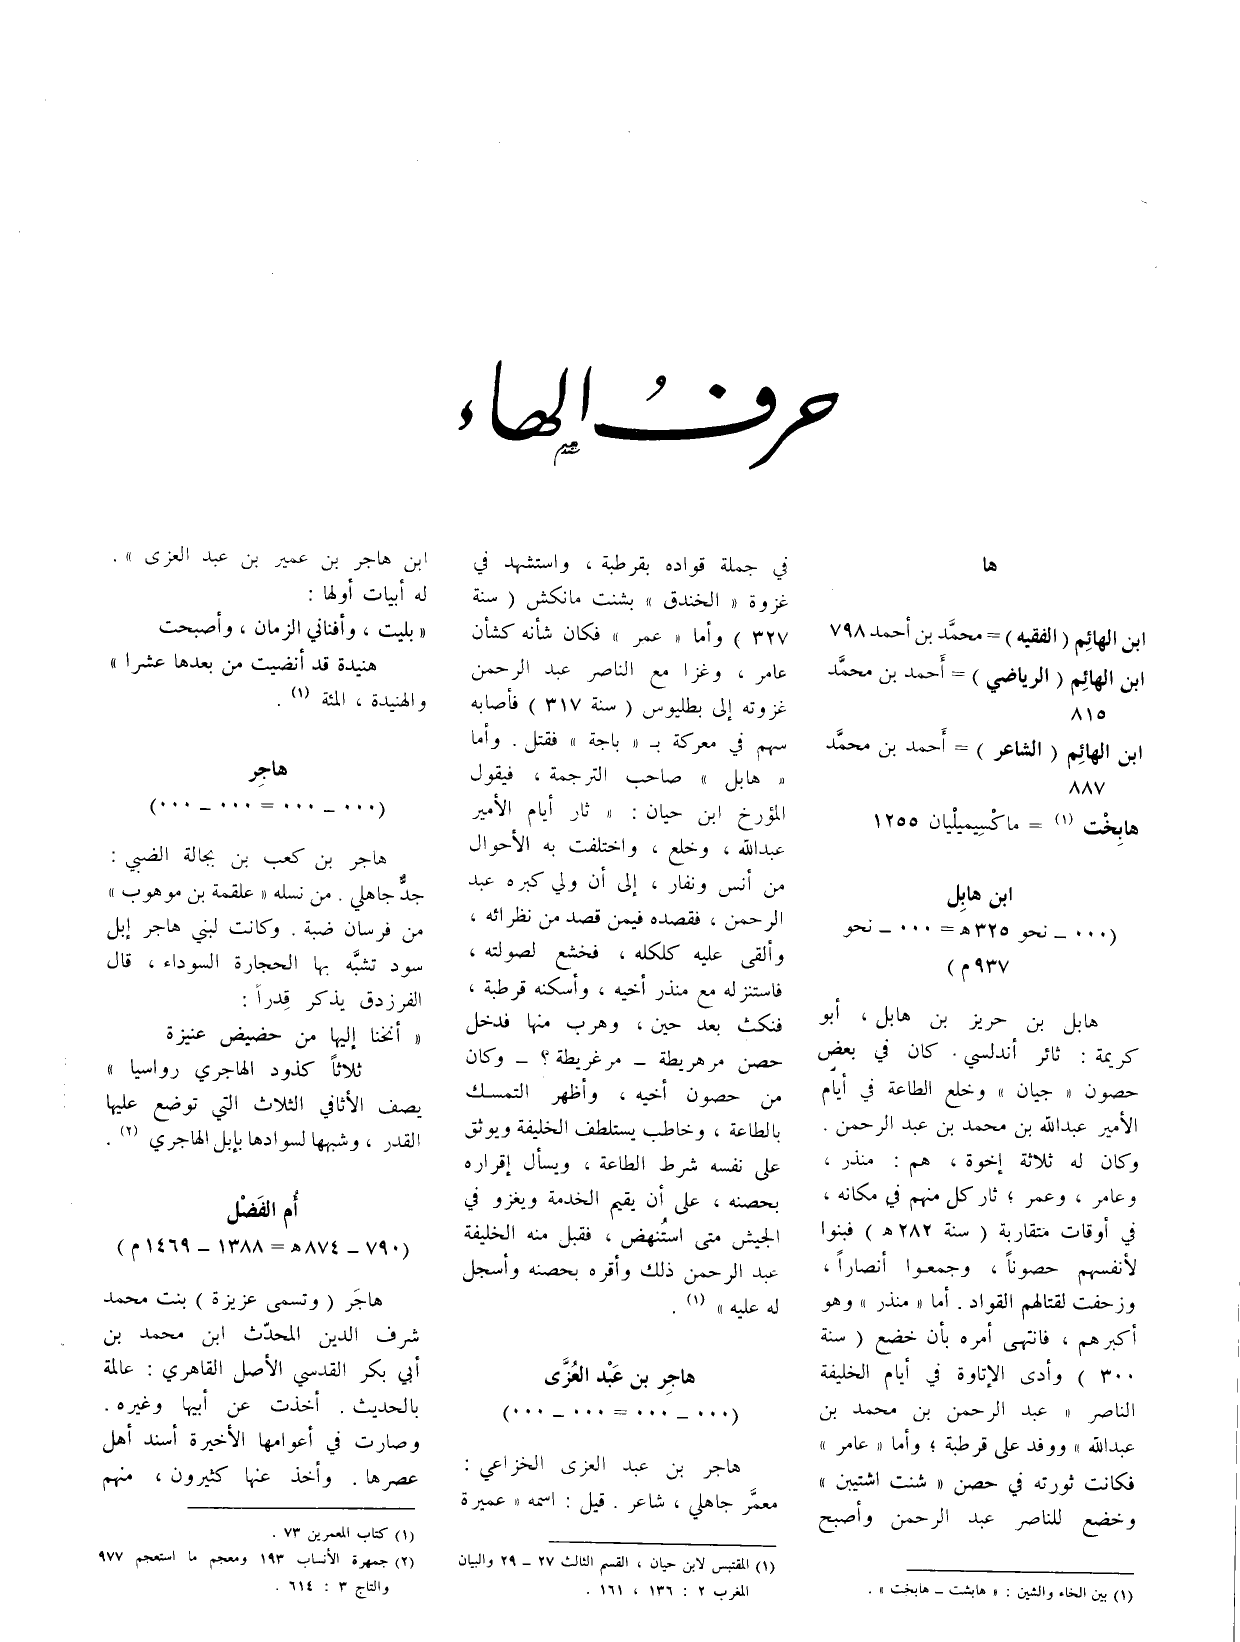 حرفُ الهاء
ها
ابن الهائِم ( الفقيه ) = محمَّد بن أحمد ٧٩٨
ابن الهائِم ( الرياضي ) = أَحمد بن محمَّد
٨١٥
ابن الهائِم ( الشاعر ) = أَحمد بن محمَّد
٨٨٧
هابِخْت (١) = ماكْسِيمِيلْيان ١٢٥٥
ابن هابِل
(٠٠٠ ـ نحو ٣٢٥ هـ = ٠٠٠ ـ نحو
٩٣٧ م )
هابل بن حريز بن هابل ، أبو
كريمة : ثائر أندلسي . كان في بعض
حصون « جيان » وخلع الطاعة في أيام
الأمير عبدالله بن محمد بن عبد الرحمن .
وكان له ثلاثة إخوة ، هم : منذر ،
وعامر ، وعمر ؛ ثار كل منهم في مكانه ،
في أوقات متقاربة ( سنة ٢٨٢ هـ ) فبنوا
لأنفسهم حصوناً ، وجمعوا أنصاراً ،
وزحفت لقتالهم القواد . أما « منذر » وهو
أكبرهم ، فانتهى أمره بأن خضع ( سنة
٣٠٠ ) وأدى الإتاوة في أيام الخليفة
الناصر « عبد الرحمن بن محمد بن
عبدالله » ووفد على قرطبة ؛ وأما « عامر »
فكانت ثورته في حصن « شنت اشتيين »
وخضع للناصر عبد الرحمن وأصبح
(١) بين الخاء والشين : « هابشت ـ هابخت » .
في جملة قواده بقرطبة ، واستشهد في
غزوة « الخندق » بشنت مانكش ( سنة
٣٢٧ ) وأما « عمر » فكان شأنه كشأن
عامر ، وغزا مع الناصر عبد الرحمن
غزوته إلى بطليوس ( سنة ٣١٧ ) فأصابه
سهم في معركة بـ « باجة » فقتل . وأما
« هابل » صاحب الترجمة ، فيقول
المؤرخ ابن حيان : « ثار أيام الأمير
عبدالله ، وخلع ، واختلفت به الأحوال
من أنس ونفار ، إلى أن ولي كبره عبد
الرحمن ، فقصده فيمن قصد من نظرائه ،
وألقى عليه كلكله ، فخشع لصولته ،
فاستنزله مع منذر أخيه ، وأسكنه قرطبة ،
فنكث بعد حين ، وهرب منها فدخل
حصن مرهريطة ـ مرغريطة ؟ ـ وكان
من حصون أخيه ، وأظهر التمسك
بالطاعة ، وخاطب يستلطف الخليفة ويوثق
على نفسه شرط الطاعة ، ويسأل إقراره
بحصنه ، على أن يقيم الخدمة ويغزو في
الجيش متى استُنهض ، فقبل منه الخليفة
عبد الرحمن ذلك وأقره بحصنه وأسجل
له عليه » (١) .
هاجِر بن عَبْد العُزَّى
(٠٠٠ ـ ٠٠٠ = ٠٠٠ ـ ٠٠٠)
هاجر بن عبد العزى الخزاعي :
معمَّر جاهلي ، شاعر . قيل : اسمه « عميرة
(١) المقتبس لابن حيان ، القسم الثالث ٢٧ ـ ٢٩ والبيان
المغرب ٢ : ١٣٦ ، ١٦١ .
ابن هاجر بن عمير بن عبد العزى » .
له أبيات أولها :
« بليت ، وأفناني الزمان ، وأصبحت
هنيدة قد أنضيت من بعدها عشرا »
والهنيدة ، المئة (١) .
هاجِر
(٠٠٠ ـ ٠٠٠ = ٠٠٠ ـ ٠٠٠)
هاجر بن كعب بن بجالة الضبي :
جدٌّ جاهلي . من نسله « علقمة بن موهوب »
من فرسان ضبة . وكانت لبني هاجر إبل
سود تشبَّه بها الحجارة السوداء ، قال
الفرزدق يذكر قِدراً :
« أنخنا إليها من حضيض عنيزة
ثلاثاً كذود الهاجري رواسيا »
يصف الأثافي الثلاث التي توضع عليها
القدر ، وشبهها لسوادها بإبل الهاجري (٢) .
أُم الفَضْل
(٧٩٠ ـ ٨٧٤ هـ = ١٣٨٨ ـ ١٤٦٩ م )
هاجَر ( وتسمى عزيزة ) بنت محمد
شرف الدين المحدّث ابن محمد بن
أبي بكر القدسي الأصل القاهري : عالمة
بالحديث . أخذت عن أبيها وغيره .
وصارت في أعوامها الأخيرة أسند أهل
عصرها . وأخذ عنها كثيرون ، منهم
(١) كتاب المعمرين ٧٣ .
(٢) جمهرة الأنساب ١٩٣ ومعجم ما استعجم ٩٧٧
والتاج ٣ : ٦١٤ .